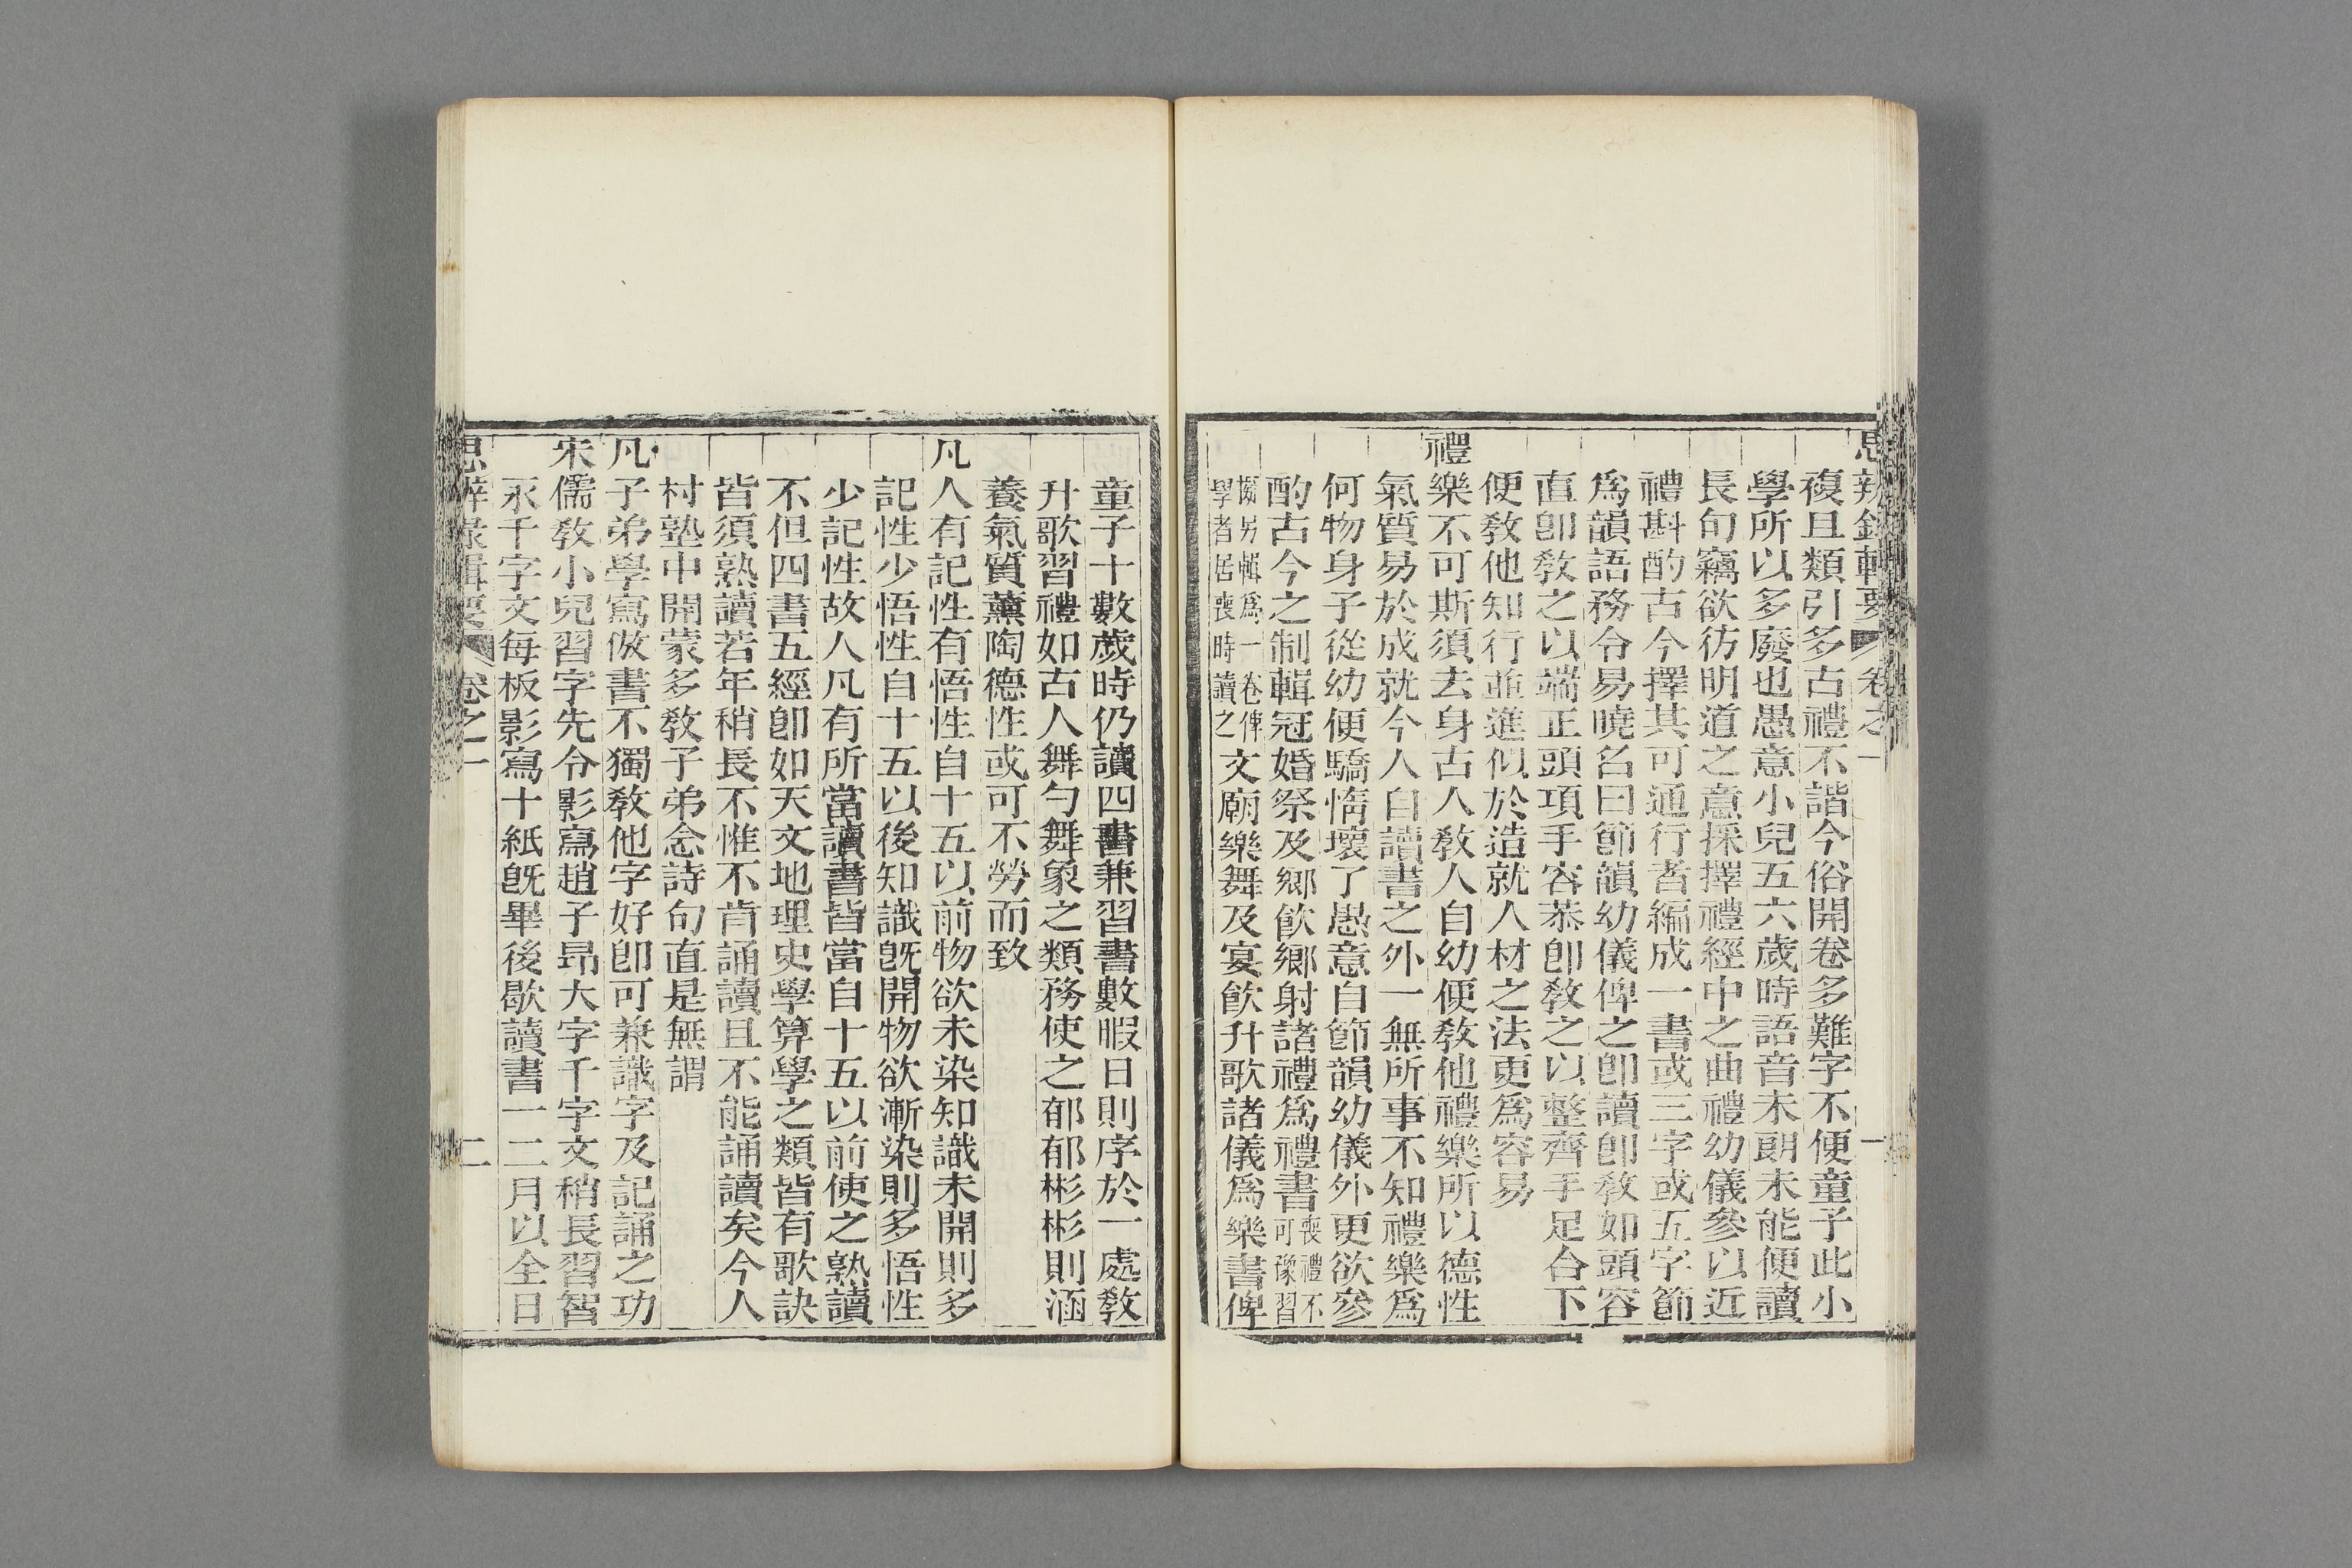 思辨錄輯要 卷之一 一
複且類引多古禮不諧今俗開卷多難字不便童子此小
學所以多廢也愚意小兒五六歲時語音未朗未能便讀
長句竊欲彷明道之意採擇禮經中之曲禮幼儀參以近
禮斟酌古今擇其可通行者編成一書或三字或五字節
爲韻語務令易曉名曰節韻幼儀俾之卽讀卽敎如頭容
直卽敎之以端正頭項手容恭卽敎之以整齊手足合下
便敎他知行並進似於造就人材之法更爲容易
禮樂不可斯須去身古人敎人自幼便敎他禮樂所以德性
氣質易於成就今人自讀書之外一無所事不知禮樂爲
何物身子從幼便驕惰壞了愚意自節韻幼儀外更欲參
酌古今之制輯冠婚祭及鄉飮鄉射諸禮爲禮書喪禮不可豫習
擬另輯爲一卷俾學者居喪時讀之文廟樂舞及宴飮升歌諸儀爲樂書俾
童子十數歲時仍讀四書兼習書數暇日則序於一處敎
升歌習禮如古人舞勺舞象之類務使之郁郁彬彬則涵
養氣質薰陶德性或可不勞而致
凡人有記性有悟性自十五以前物欲未染知識未開則多
記性少悟性自十五以後知識旣開物欲漸染則多悟性
少記性故人凡有所當讀書皆當自十五以前使之熟讀
不但四書五經卽如天文地理史學算學之類皆有歌訣
皆須熟讀若年稍長不惟不肯誦讀且不能誦讀矣今人
村塾中開蒙多敎子弟念詩句直是無謂
凡子弟學寫倣書不獨敎他字好卽可兼識字及記誦之功
宋儒敎小兒習字先令影寫趙子昂大字千字文稍長習智
永千字文每板影寫十紙旣畢後歇讀書一二月以全日
思辨錄輯要 卷之一 二